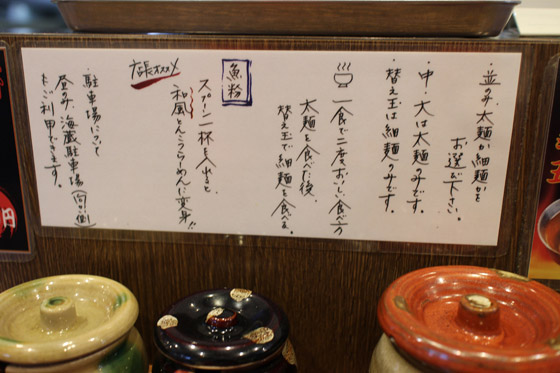 ・並のみ、太麺か細麺かを
お選び下さい。
・中、大は太麺のみです。
・替え玉は細麺のみです。
一食で二度おいしい食べ方
太麺を食べた後、
替え玉で細麺を食べる。
魚粉
スプーン一杯を入れると、
和風とんこつらーめんに変身!!
店長オススメ
・駐車場について
昼のみ、海蔵駐車場(向い側)
もご利用できます。
円